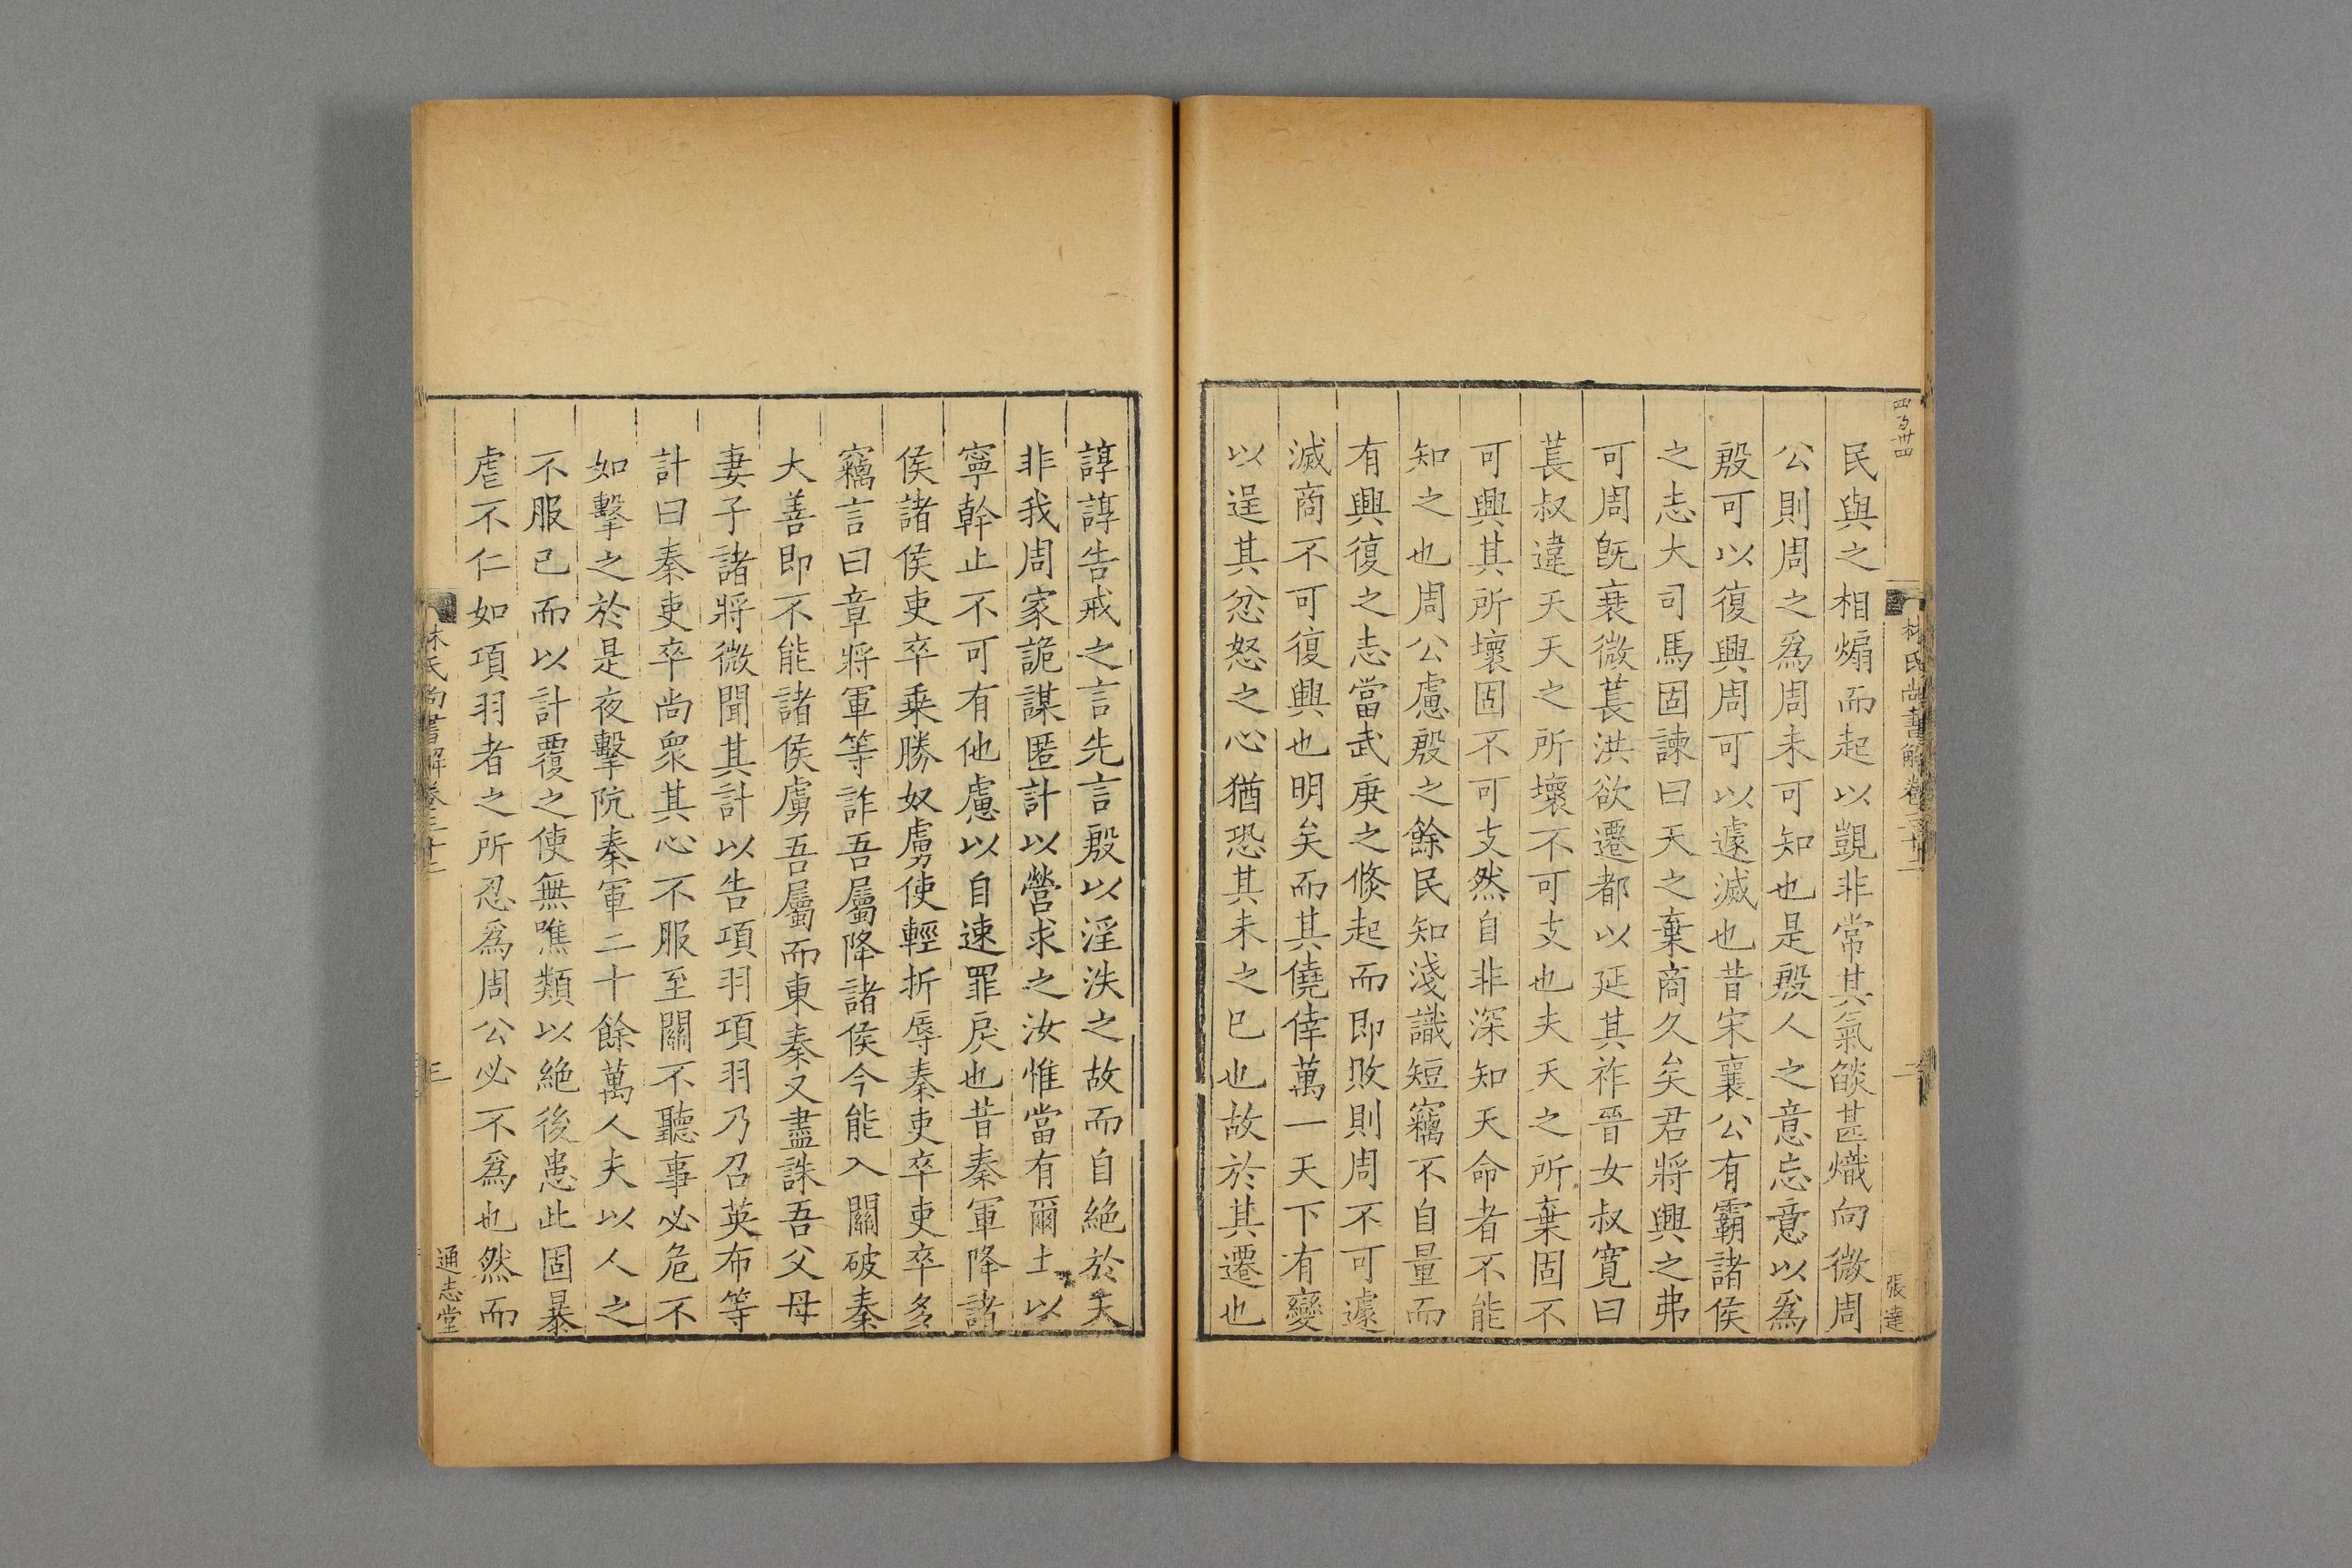 四百卅四
民與之相煽而起以覬非常其氣燄甚熾向微周
公則周之爲周未可知也是殷人之意忘意以爲
殷可以復興周可以遽滅也昔宋襄公有霸諸侯
之志大司馬固諫曰天之棄商久矣君將興之弗
可周旣衰微萇洪欲遷都以延其祚晉女叔寬曰
萇叔違天天之所壞不可支也夫天之所棄固不
可興其所壞固不可支然自非深知天命者不能
知之也周公慮殷之餘民知淺識短竊不自量而
有興復之志當武庚之倏起而即敗則周不可遽
滅商不可復興也明矣而其僥倖萬一天下有變
以逞其忿怒之心猶恐其未之已也故於其遷也
林氏尚書解卷三十二
二
張達
諄諄告戒之言先言殷以淫泆之故而自絶於天
非我周家詭謀匿計以營求之汝惟當有爾土以
寧幹止不可有他慮以自速罪戾也昔秦軍降諸
侯諸侯吏卒乗勝奴虜使輕折辱秦吏卒吏卒多
竊言曰章將軍等詐吾屬降諸侯今能入關破秦
大善即不能諸侯虜吾屬而東秦又盡誅吾父母
妻子諸將微聞其計以告項羽項羽乃召英布等
計曰秦吏卒尚衆其心不服至關不聽事必危不
如擊之於是夜擊阬秦軍二十餘萬人夫以人之
不服已而以計覆之使無噍類以絶後患此固暴
虐不仁如項羽者之所忍爲周公必不爲也然而
林氏尚書解卷三十二
三
通志堂